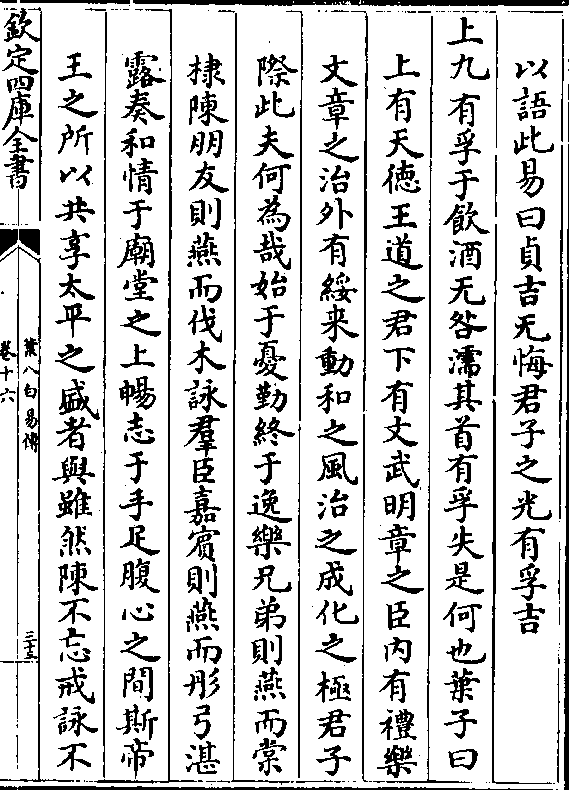 以語此易曰貞吉无悔君子之光有孚吉
上九有孚于飲酒无咎濡其首有孚失是何也葉子曰
上有天徳王道之君下有文武明章之臣内有禮樂
文章之治外有綏来動和之風治之成化之極君子
際此夫何為哉始于憂勤終于逸樂兄弟則燕而棠
棣陳朋友則燕而伐木詠羣臣嘉賓則燕而彤弓湛
露奏和情于廟堂之上暢志于手足腹心之間斯帝
王之所以共享太平之盛者與雖然陳不忘戒詠不
欽定四庫全書
葉八白易傳
卷十六
三十三